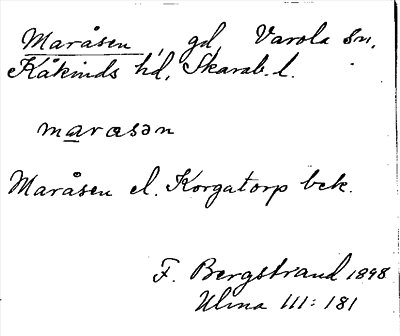 Maråsen, gd, Varola sn,
Kåkinds hd, Skarab. l.
marasən
Maråsen el. Korgatorp bek.
F. Bergstrand 1898
Ulma 111: 181